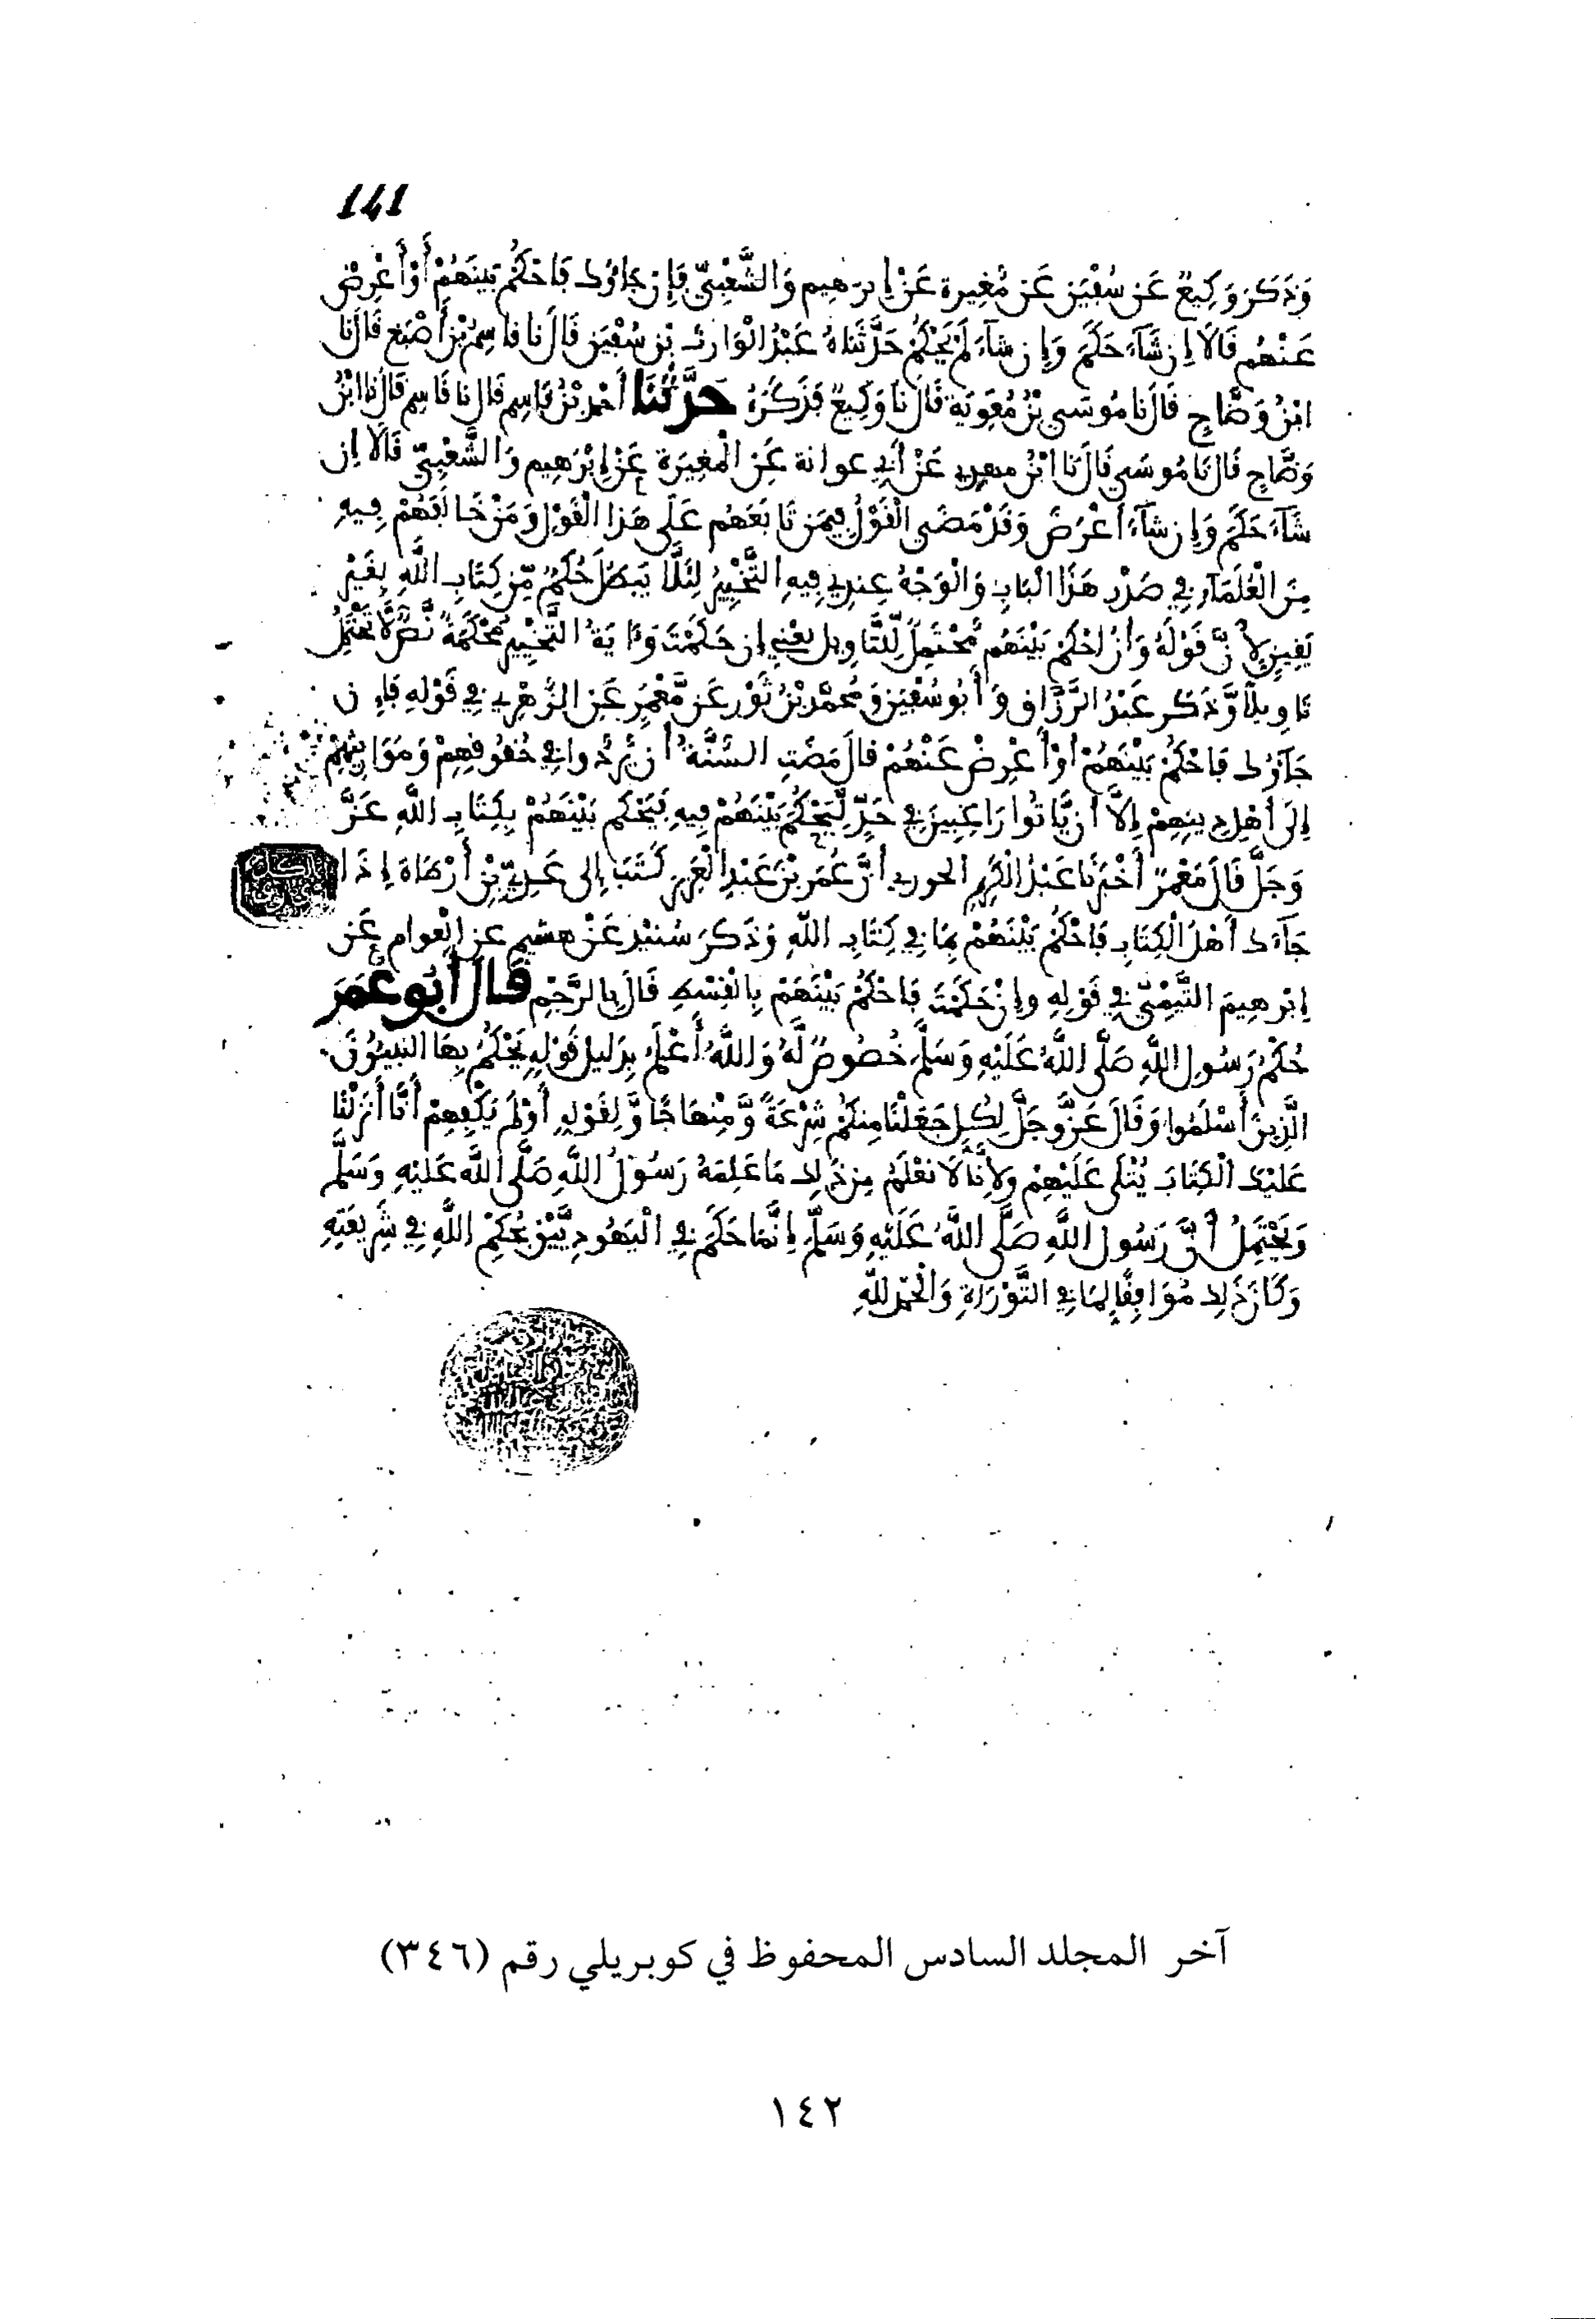 141
وَذَكَرَ وَكِيعٌ عَن سُفْيَن عَن مُّغِيرة عَنْ إبرهيم وَالشَّعْبِيّ فَإِن جَاؤُكَ فَاحْكُم بَيْنَهُمْ أَوْ أَعْرِضْ
عَنْهُم قَالَا إِن شَآءَ حَكَمَ وَإِن شآءَ لَمْ يَحْكُمْ حَدَّثَنَاهُ عَبْدُ الْوَارِث بْن سُفْيَن قَالَ نا قاسِمُ بْنُ أَصْبَغ قَالَ نا
ابْنُ وَضَّاحٍ قَالَ نا مُوسَى بْنُ مُعَوِيَةَ قَالَ نَا وَكِيعٌ فَذَكَرَهُ حَدَّثَنَا أَحْمَدُ بْنُ قَاسِمٍ قَالَ نا قَاسِم قَالَ نا ابْنُ
وَضَّاحٍ قَالَ نَا مُوسَى قَالَ نَا ابْنُ مهدي عَنْ أَبِي عوانة عَنِ الْمُغِيرَة عَنْ إِبْرَهِيم وَالشَّعْبِيّ قَالَا إِن
شَآءَ حَكَمَ وَإِن شآءَ أَعْرَضَ وَقَدْ مَضَى الْقَوْلُ فِيمَن تَابَعَهُم عَلَى هَذَا الْقَوْلِ وَمَنْ خَالَفَهُمْ فِيهِ
مِنَ الْعُلَمَآءِ فِي صَدْرِ هَذَا الْبَابِ وَالْوَجْهُ عِندِي فِيهِ التَّخْيِيرُ لِئَلَّا يَبْطُلَ حُكْمٌ مِّن كِتَابِ اللَّهِ بِغَيْرِ
يَقِينٍ لِأَنَّ قَوْلَهُ وَأَنُ احْكُم بَيْنَهُم مُّحْتَمِلٌ لِّلتَّاوِيل يعْنِي إِن حَكَمْتَ وَءايَةُ التَّخْيِيرِ مُحْكَمَةٌ نَّصٌّ لَّا يَحْتَمِلُ
تَاوِيلًا وَّذَكَر عَبْدُ الرَّزَّاق وَأَبُو سُفْيَن وَمُحَمَّدُ بْنُ ثَوْرٍ عَن مَّعْمَرٍ عَنِ الزُّهْرِي فِي قَوْلِهِ فَإِن
جَآؤُكَ فَاحْكُم بَيْنَهُمْ أَوْ أَعْرِضْ عَنْهُمْ قالَ مَضَتِ السُّنَّةُ أَن يُرَدُّوا فِي حُقُوقِهِمْ وَمَوَارِيثِهِمْ
إِلَى أَهْلِ دِينِهِمْ إِلَّا أَن يَّاتُوا رَاغِبِينَ فِي حَدٍّ لِّيَحْكُمَ بَيْنَهُمْ فِيهِ فَيَحْكُم بَيْنَهُمْ بِكِتَابِ اللَّهِ عَزَّ
وَجَلَّ قَالَ مَعْمَرٌ أَخْبَرَنَا عَبْدُ الْكَرِيمِ أَنَّ عُمَرَ بْنَ عَبْدِ الْعَزِيزِ كَتَبَ إِلَى عَدِيِّ بْنِ أَرْطَاةَ إِذَا
جَآءَكَ أَهْلُ الْكِتَابِ فَاحْكُم بَيْنَهُمْ بِمَا فِي كِتَابِ اللَّهِ وَذَكَرَ سُنَيْدٌ عَنْ هشيم عن الْعوام عَن
إِبْرهِيمَ التَّيْمِيّ فِي قَوْلِهِ وَإِنْ حَكَمْتَ فَاحْكُمْ بَيْنَهُمْ بِالْقِسْطِ قَالَ بِالرَّجْمِ قَالَ أَبُو عُمَرَ
حُكْمُ رَسُولِ اللَّهِ صَلَّى اللَّهُ عَلَيْهِ وَسَلَّمَ خُصُوصٌ لَّهُ وَاللَّهُ أَعْلَمُ بِدَلِيلِ قَوْلِهِ يَحْكُمُ بِهَا النَّبِيئُونَ
الَّذِينَ أَسْلَمُوا وَقَالَ عَزَّ وَجَلَّ لِكُلٍّ جَعَلْنَا مِنكُمْ شِرْعَةً وَّمِنْهَاجًا وَّلِقَوْلِهِ أَوَلَمْ يَكْفِهِمْ أَنَّا أَنزَلْنَا
عَلَيْكَ الْكِتَابَ يُتْلَى عَلَيْهِمْ وَلِأَنَّا لَا نَعْلَمُ مِن ذَلِكَ مَا عَلِمَهُ رَسُولُ اللَّهِ صَلَّى اللَّه عَلَيْهِ وَسَلَّمَ
وَيَحْتَمِلُ أَنَّ رَسُولَ اللَّهِ صَلَّى اللَّهُ عَلَيْهِ وَسَلَّمَ إِنَّمَا حَكَمَ فِي الْيَهُودِيَّيْنِ بِحُكْمِ اللَّهِ فِي شَرِيعَتِهِ
وَكَانَ ذَلِكَ مُوَافِقًا لِمَا فِي التَّوْرَاةِ وَالْحَمْدُ لِلَّهِ
آخر المجلد السادس المحفوظ في كوبريلي رقم (٣٤٦)
١٤٢